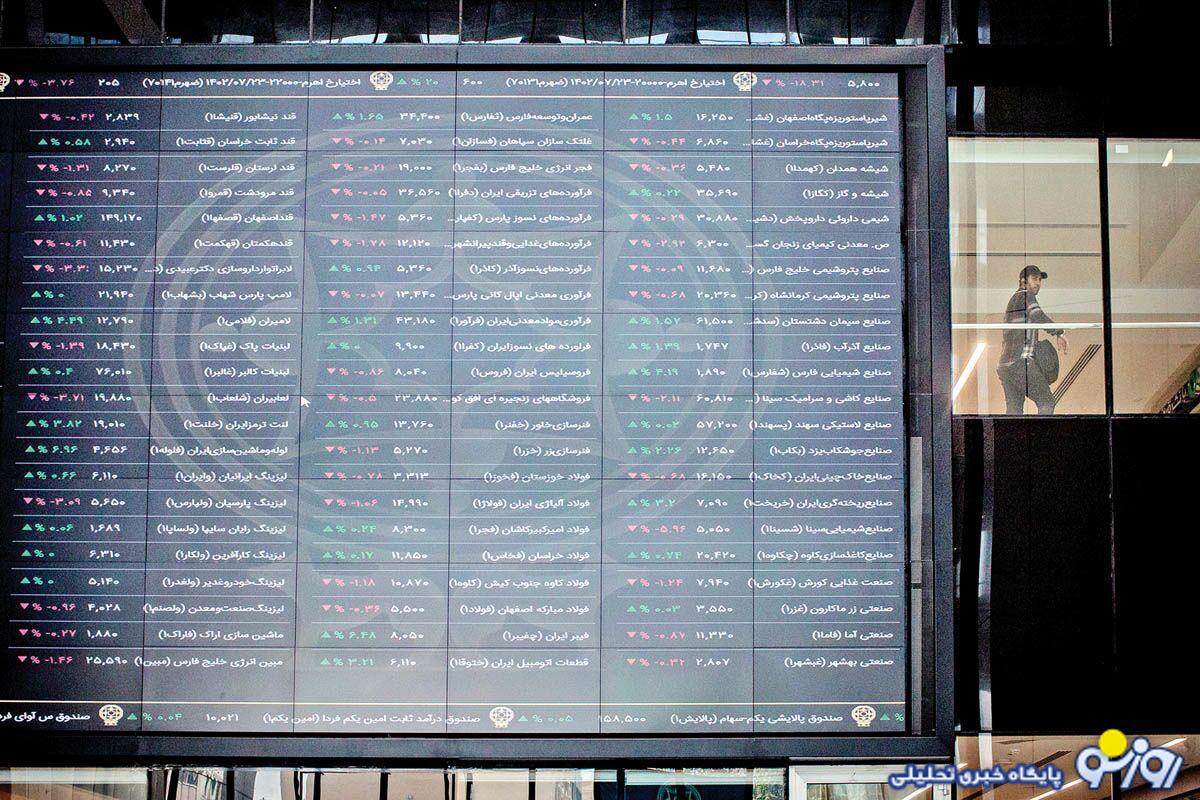 ۵,۸۰۰ -۱۸.۳۱ %
اختیارخ اهرم-۲۰۰۰۰-۱۴۰۲/۰۷/۲۳ (ضهرم۷۰۱۳۱) ۶۰۰ ۲۰ %
اختیارخ اهرم-۲۲۰۰۰-۱۴۰۲/۰۷/۲۳ (ضهرم۷۰۱۴۱) ۲۰۵ -۳.۷۶ %
شیرپاستوریزه‌پگاه‌اصفهان (غشـ... ۱۶,۲۵۰ ۱.۵ %
شیرپاستوریزه‌پگاه‌خراسان (غشا... ۶,۸۶۰ -۰.۴۴ %
شیشه همدان (کهمدا۱) ۵,۴۸۰ -۰.۳۶ %
شیشه و گاز (کگاز۱) ۳۵,۶۹۰ ۰.۲۲ %
شیمی داروئی داروپخش (دشیـ... ۳۰,۸۸۰ -۰.۲۹ %
ص. معدنی کیمیای زنجان گسـ... ۶,۳۰۰ -۲.۹۲ %
صنایع پتروشیمی خلیج فارس (... ۱۱,۶۸۰ -۰.۰۹ %
صنایع پتروشیمی کرمانشاه (کر... ۲۰,۳۶۰ -۰.۶۸ %
صنایع سیمان دشتستان (سدشـ... ۶۱,۵۰۰ ۱.۵۷ %
صنایع آذرآب (فاذر۱) ۱,۷۴۷ ۱.۳۹ %
صنایع شیمیایی فارس (شفارس۱) ۱,۸۹۰ ۴.۱۹ %
صنایع کاشی و سرامیک سینا (... ۶۰,۸۱۰ -۲.۱۱ %
صنایع لاستیکی سهند (پسهند۱) ۵۷,۲۰۰ ۰.۰۲ %
صنایع‌جوشکاب‌یزد (بکاب۱) ۱۲,۶۵۰ ۲.۲۶ %
صنایع‌خاک‌چینی‌ایران (کخاک۱) ۱۶,۱۵۰ -۰.۶۸ %
صنایع‌ریخته‌گری‌ایران (خریخت۱) ۷,۰۹۰ ۳.۲ %
صنایع‌شیمیایی‌سینا (شسینا۱) ۵,۰۵۰ -۵.۹۶ %
صنایع‌کاغذسازی‌کاوه (چکاوه۱) ۲۰,۴۲۰ ۰.۷۴ %
صنعت غذایی کورش (غکورش۱) ۷,۹۴۰ -۱.۲۴ %
صنعتی زر ماکارون (غزر۱) ۳,۵۵۰ ۰.۰۳ %
صنعتی آما (فاما۱) ۱۱,۳۳۰ -۰.۸۷ %
صنعتی بهشهر (غبشهر۱) ۲,۸۰۷ -۰.۳۲ %
عمران‌وتوسعه‌فارس (ثفارس۱) ۳۴,۴۰۰ ۱.۶۵ %
غلتک سازان سپاهان (فسازان۱) ۷,۰۳۰ -۰.۱۴ %
فجر انرژی خلیج فارس (بفجر۱) ۱۹,۰۰۰ -۰.۲۱ %
فرآورده‌های تزریقی ایران (دفرا۱) ۳۶,۵۶۰ -۰.۰۵ %
فرآورده‌های نسوز پارس (کفپار... ۵,۳۶۰ -۱.۴۷ %
فرآورده‌های‌غذایی‌وقندپیرانشهر... ۱۲,۱۲۰ -۱.۷۸ %
فرآورده‌های‌نسوزآذر (کاذر۱) ۵,۳۶۰ ۰.۹۴ %
فرآوری معدنی اپال کانی پارس... ۱۳,۴۴۰ -۰.۰۷ %
فرآوری‌موادمعدنی‌ایران (فرآور۱) ۴۳,۱۸۰ ۱.۳۱ %
فراورده های نسوزایران (کفرا۱) ۹,۹۰۰ ۰ %
فروسیلیس ایران (فروس۱) ۸,۰۴۰ -۰.۸۶ %
فروشگاههای زنجیره ای افق کو... ۲۳,۸۸۰ -۰.۵ %
فنرسازی‌خاور (خفنر۱) ۱۳,۷۶۰ ۰.۹۵ %
فنرسازی‌زر (خزر۱) ۵,۲۷۰ -۱.۱۳ %
فولاد خوزستان (فخوز۱) ۳,۳۱۳ -۰.۷۸ %
فولاد آلیاژی ایران (فولاژ۱) ۱۴,۹۹۰ -۱.۰۶ %
فولاد امیرکبیرکاشان (فجر۱) ۸,۳۰۰ ۰.۲۴ %
فولاد خراسان (فخاس۱) ۱۱,۸۵۰ ۰.۱۷ %
فولاد کاوه جنوب کیش (کاوه۱) ۱۰,۸۷۰ -۱.۱۸ %
فولاد مبارکه اصفهان (فولاد۱) ۵,۵۰۰ -۰.۳۶ %
فیبر ایران (چفیبر۱) ۸,۰۵۰ ۶.۴۸ %
قطعات اتومبیل ایران (ختوقا۱) ۶,۱۱۰ ۳.۲۱ %
قند نیشابور (قنیشا۱) ۲,۸۳۹ -۰.۴۲ %
قند ثابت خراسان (قثابت۱) ۲,۹۴۰ ۰.۵۸ %
قند لرستان (قلرست۱) ۸,۲۷۰ -۱.۳۱ %
قند مرودشت (قمرو۱) ۹,۳۴۰ -۰.۸۵ %
قنداصفهان (قصفها۱) ۱۴۹,۱۷۰ ۱.۰۲ %
قندهکمتان (قهکمت۱) ۱۱,۴۳۰ -۰.۶۱ %
لابراتوارداروسازی دکترعبیدی (د... ۱۵,۲۳۰
لامپ پارس شهاب (بشهاب۱) ۲۱,۹۴۰ ۰ %
لامیران (فلامی۱) ۱۲,۷۹۰ ۴.۴۹ %
لبنیات پاک (غپاک۱) ۱۸,۴۳۰ -۱.۳۹ %
لبنیات کالبر (غالبر۱) ۷۶,۰۱۰ ۰.۴ %
لعابیران (شلعاب۱) ۱۹,۸۸۰ -۳.۷۱ %
لنت ترمزایران (خلنت۱) ۱۹,۰۱۰ ۳.۸۲ %
لوله‌وماشین‌سازی‌ایران (فلوله۱) ۴,۶۵۶ ۶.۹۶ %
لیزینگ ایرانیان (وایران۱) ۶,۱۱۰ ۰.۶۶ %
لیزینگ پارسیان (ولپارس۱) ۵,۶۵۰ -۳.۰۹ %
لیزینگ رایان سایپا (ولساپا۱) ۱,۶۸۹ ۰.۰۶ %
لیزینگ کارآفرین (ولکار۱) ۶,۳۱۰ ۰ %
لیزینگ‌خودروغدیر (ولغدر۱) ۵,۱۴۰ ۰ %
لیزینگ‌صنعت‌ومعدن (ولصنم۱) ۴,۰۲۸ -۰.۹۶ %
ماشین سازی اراک (فاراک۱) ۱,۸۸۰ -۰.۲۷ %
مبین انرژی خلیج فارس (مبین۱) ۲۵,۵۹۰ -۱.۴۶ %
%
صندوق پالایشی یکم-سهام (پالایش۱) ۱۵۸,۵۰۰ ۰.۰۵ %
صندوق درآمد ثابت امین یکم فردا (امین یکم۱) ۱۰,۰۲۱ ۰.۰۴ %
صندوق س آوای فرد
روزنو
پایگاه خبری تحلیلی